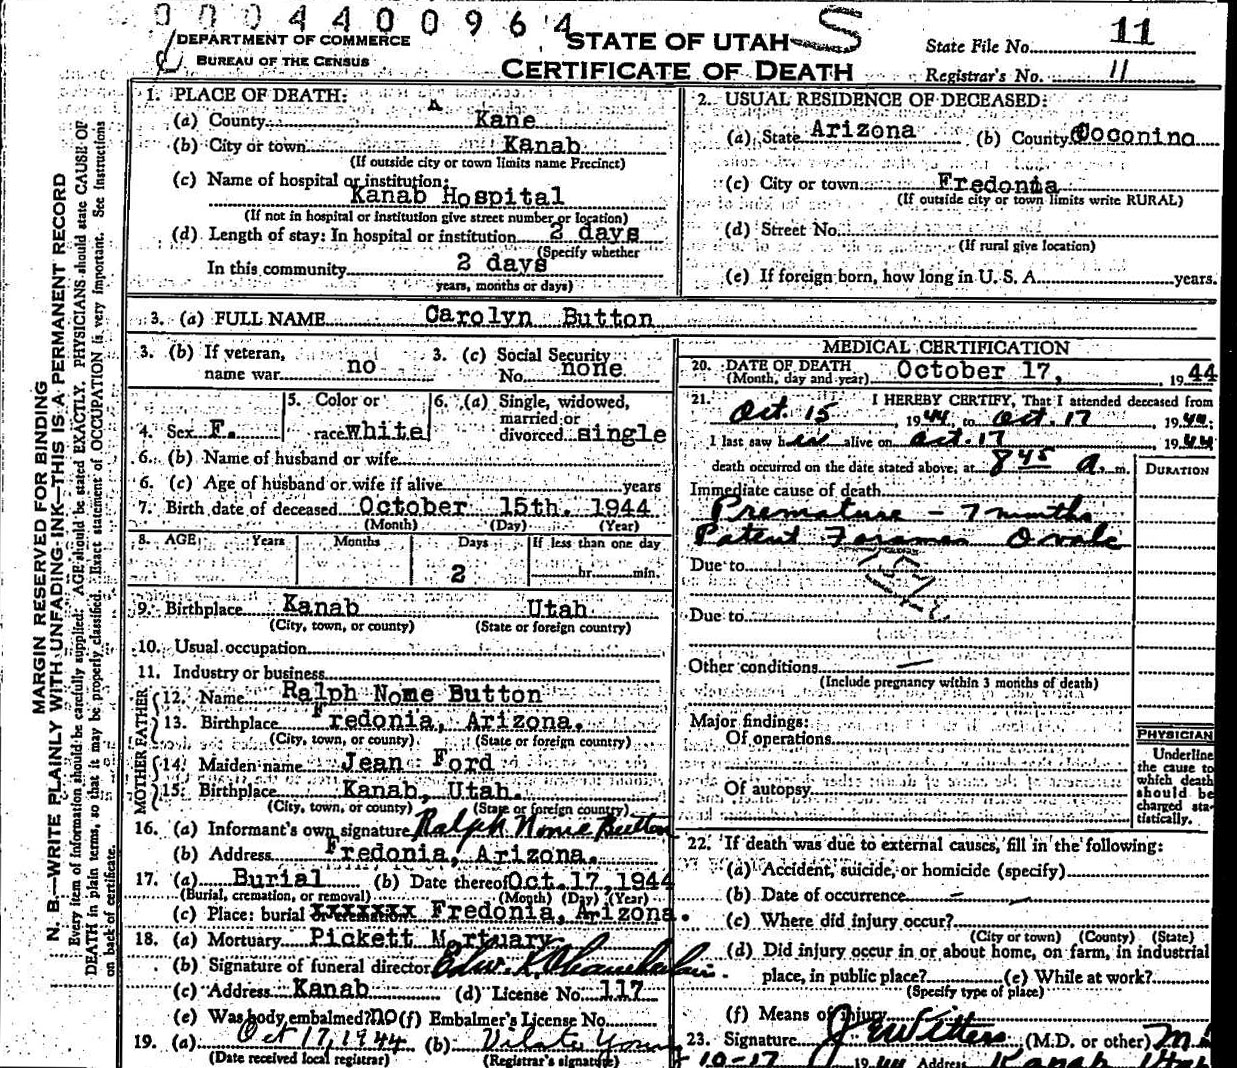 0004400964
DEPARTMENT OF COMMERCE
BUREAU OF THE CENSUS
STATE OF UTAH
S
CERTIFICATE OF DEATH
State File No. 11
Registrar's No. 11
MARGIN RESERVED FOR BINDING
N. B.—WRITE PLAINLY WITH UNFADING INK—THIS IS A PERMANENT RECORD
Every item of information should be carefully supplied. AGE should be stated EXACTLY. PHYSICIANS should state CAUSE OF
DEATH in plain terms, so that it may be properly classified. Exact statement of OCCUPATION is very important. See Instructions
on back of certificate.
1. PLACE OF DEATH:
(a) County Kane
(b) City or town Kanab
(If outside city or town limits name Precinct)
(c) Name of hospital or institution:
Kanab Hospital
(If not in hospital or institution give street number or location)
(d) Length of stay: In hospital or institution 2 days
(Specify whether
In this community 2 days
years, months or days)
2. USUAL RESIDENCE OF DECEASED:
(a) State Arizona (b) County Coconino
(c) City or town Fredonia
(If outside city or town limits write RURAL)
(d) Street No.
(If rural give location)
(e) If foreign born, how long in U. S. A. years.
3. (a) FULL NAME Carolyn Button
3. (b) If veteran,
name war no
3. (c) Social Security
No. none
4. Sex F.
5. Color or
race white
6. (a) Single, widowed,
married or
divorced single
6. (b) Name of husband or wife
6. (c) Age of husband or wife if alive years
7. Birth date of deceased October 15th. 1944
(Month) (Day) (Year)
8. AGE: Years Months Days If less than one day
2 hr. min.
9. Birthplace Kanab Utah
(City, town, or county) (State or foreign country)
10. Usual occupation
11. Industry or business
FATHER
12. Name Ralph Nome Button
13. Birthplace Fredonia, Arizona.
(City, town, or county) (State or foreign country)
MOTHER
14. Maiden name Jean Ford
15. Birthplace Kanab, Utah.
(City, town, or county) (State or foreign country)
16. (a) Informant's own signature Ralph Nome Button
(b) Address Fredonia, Arizona.
17. (a) Burial (b) Date thereof Oct. 17, 1944
(Burial, cremation, or removal) (Month) (Day) (Year)
(c) Place: burial xxxxxxx Fredonia, Arizona.
18. (a) Mortuary Pickett Mortuary
(b) Signature of funeral director
(c) Address Kanab (d) License No. 117
(e) Was body embalmed? no (f) Embalmer's License No.
19. (a) Oct 17, 1944 (b)
(Date received local registrar) (Registrar's signature)
MEDICAL CERTIFICATION
20. DATE OF DEATH
(Month, day and year) October 17, 1944
21. I HEREBY CERTIFY, That I attended deceased from
Oct. 15 1944 to Oct. 17 1944;
I last saw her alive on Oct. 17 1944
death occurred on the date stated above; at 8 45 a. m.
DURATION
Immediate cause of death
Premature - 7 months
Patent Foramen Ovale
Due to
Due to
Other conditions —
(Include pregnancy within 3 months of death)
Major findings:
Of operations
Of autopsy
PHYSICIAN
Underline
the cause to
which death
should be
charged sta-
tistically.
22. If death was due to external causes, fill in the following:
(a) Accident, suicide, or homicide (specify)
(b) Date of occurrence
(c) Where did injury occur?
(City or town) (County) (State)
(d) Did injury occur in or about home, on farm, in industrial
place, in public place? (e) While at work?
(Specify type of place)
(f) Means of injury
23. Signature (M.D. or other)
10-17 1944 Address Kanab Utah